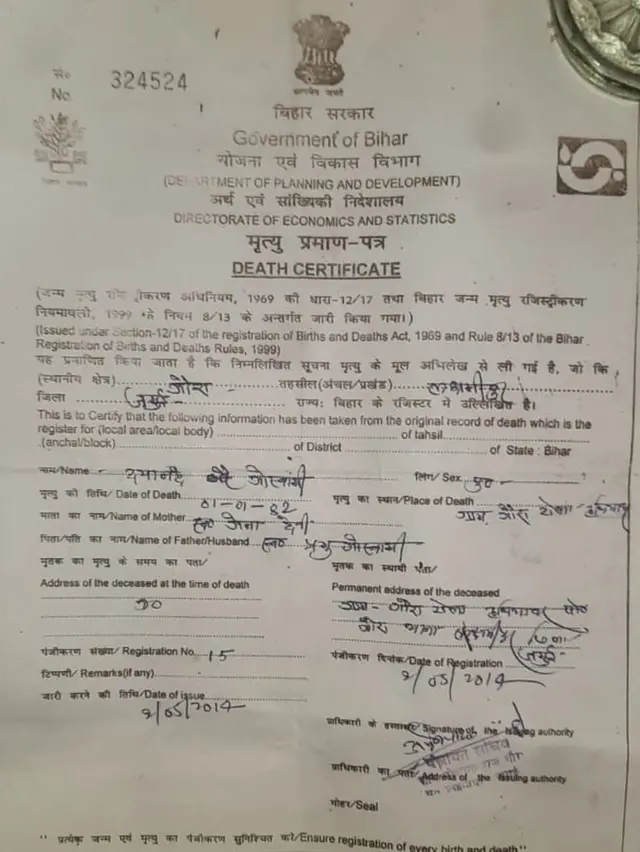 सं०
No. 324524
सत्यमेव जयते
बिहार सरकार
Government of Bihar
योजना एवं विकास विभाग
(DEPARTMENT OF PLANNING AND DEVELOPMENT)
अर्थ एवं सांख्यिकी निदेशालय
DIRECTORATE OF ECONOMICS AND STATISTICS
मृत्यु प्रमाण-पत्र
DEATH CERTIFICATE
(जन्म मृत्यु रजिस्ट्रीकरण अधिनियम, 1969 की धारा-12/17 तथा बिहार जन्म मृत्यु रजिस्ट्रीकरण
नियमावली, 1999 के नियम 8/13 के अन्तर्गत जारी किया गया।)
(Issued under Section-12/17 of the registration of Births and Deaths Act, 1969 and Rule 8/13 of the Bihar
Registration of Births and Deaths Rules, 1999)
यह प्रमाणित किया जाता है कि निम्नलिखित सूचना मृत्यु के मूल अभिलेख से ली गई है, जो कि
(स्थानीय क्षेत्र) तहसील(अंचल/प्रखंड)
जिला जमुई राज्य: बिहार के रजिस्टर में उल्लिखित है।
This is to Certify that the following information has been taken from the original record of death which is the
register for (local area/local body) of tahsil
(anchal/block) of District of State : Bihar
नाम/Name गोस्वामी लिंग/ Sex पु०
मृत्यु की तिथि/ Date of Death 01-01-82 मृत्यु का स्थान/Place of Death ग्राम
माता का नाम/Name of Mother स्व० देवी
पिता/पति का नाम/Name of Father/Husband स्व० गोस्वामी
मृतक का मृत्यु के समय का पता/ मृतक का स्थायी पता/
Address of the deceased at the time of death Permanent address of the deceased
ग्राम-
जमुई
पंजीकरण संख्या/ Registration No. 15 पंजीकरण दिनांक/Date of Registration
टिप्पणी/ Remarks(if any) 2/05/2014
जारी करने की तिथि/Date of issue
2/05/2014
प्राधिकारी के हस्ताक्षर/Signature of the issuing authority
पंचायत सचिव
प्राधिकारी का पता/Address of the issuing authority
मोहर/Seal
" प्रत्येक जन्म एवं मृत्यु का पंजीकरण सुनिश्चित करें/Ensure registration of every birth and death"